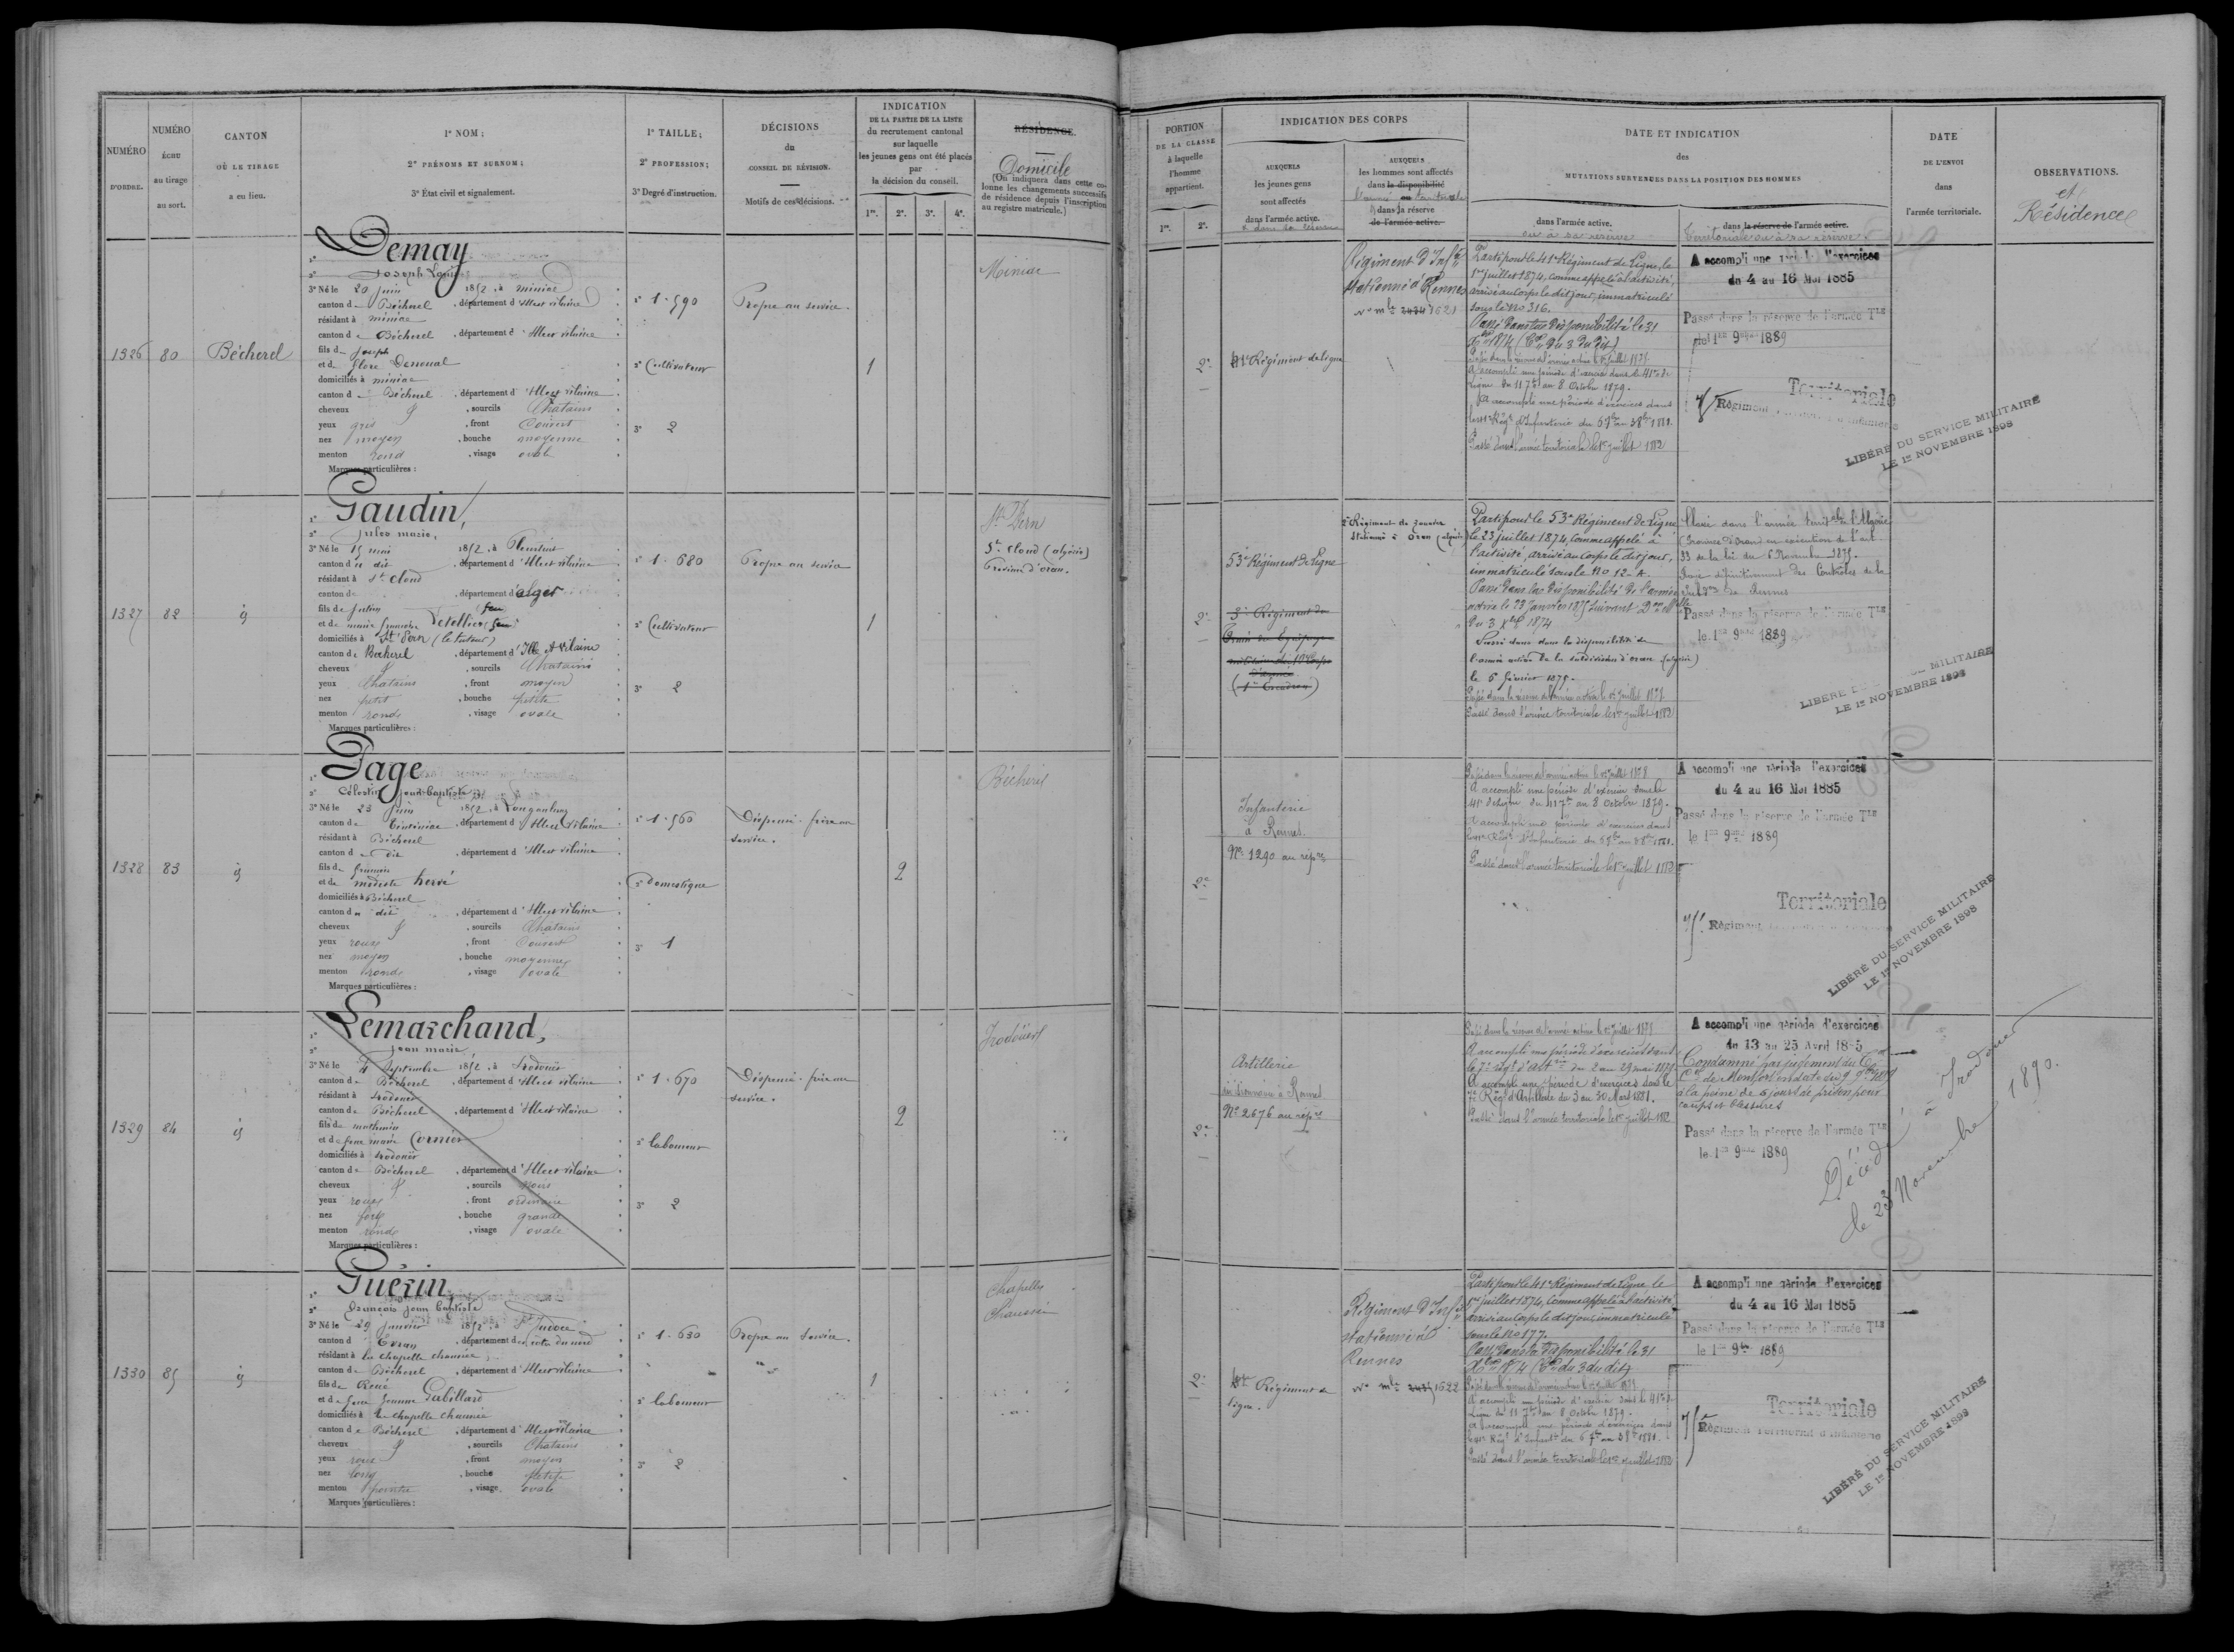 NUMÉRO
D'ORDRE.
NUMÉRO
ÉCHU
au tirage
au sort.
CANTON
OÙ LE TIRAGE
a eu lieu.
1º NOM;
2º PRÉNOMS ET SURNOM;
3º État civil et signalement.
1º TAILLE;
2º PROFESSION;
3º Degré d'instruction.
DÉCISIONS
du
CONSEIL DE RÉVISION.
Motifs de ces décisions.
INDICATION
DE LA PARTIE DE LA LISTE
du recrutement cantonal
sur laquelle
les jeunes gens ont été placés
par
la décision du conseil.
1re. 2e. 3e. 4e.
RÉSIDENCE.
Domicile
(On indiquera dans cette co-
lonne les changements successifs
de résidence depuis l'inscription
au registre matricule.)
1326 80 Bécherel
Demay
Joseph Louis
3º Né le 20 juin 1852, à miniac
canton de Bécherel, département d'Ille et vilaine
résidant à miniac
canton de Bécherel, département d'Ille et vilaine
fils de Joseph
et de flore Denoual
domiciliés à miniac
canton de Bécherel, département d'Ille et vilaine
cheveux &, sourcils Chatains
yeux gris, front Couvert
nez moyen, bouche moyenne
menton rond, visage ovale
Marques particulières :
1º 1.590
2º Cultivateur
3º 2
Propre au service.
1
Miniac
1327 82 id
Gaudin,
Jules marie,
3º Né le 15 mai 1852, à Pleurtuit
canton du dit département d'Ille et vilaine
résidant à St Cloud
canton de, département d'Alger
fils de Julien feu
et de marie françoise Letellier feue
domiciliés à St Pern (le tuteur)
canton de Bécherel, département d'Ille et vilaine
cheveux &, sourcils Chatains
yeux Chatains, front moyen
nez petit, bouche petite
menton rond, visage ovale
Marques particulières :
1º 1.680
2º Cultivateur
3º 2
Propre au service
1
St Pern
St Cloud (algérie)
Province d'oran.
1328 83 id
Page
Célestin Jean Baptiste
3º Né le 23 Juin 1852, à Longaulnay
canton de Tinténiac, département d'Ille et vilaine
résidant à Bécherel
canton du dit, département d'Ille et vilaine
fils de françois
et de modeste hervé
domiciliés à Bécherel
canton du dit, département d'Ille et vilaine
cheveux &, sourcils Chatains
yeux roux, front Couvert
nez moyen, bouche moyenne
menton rond, visage ovale
Marques particulières :
1º 1.560
2º domestique
3º 1
Dispensé. frère au
service.
2
Bécherel
1329 84 id
Lemarchand,
Jean marie
3º Né le 4 Septembre 1852, à Irodouër
canton de Bécherel, département d'Ille et vilaine
résidant à Irodouër
canton de Bécherel, département d'Ille et vilaine
fils de mathurin
et de feue marie Cornier
domiciliés à Irodouër
canton de Bécherel, département d'Ille et vilaine
cheveux &, sourcils noirs
yeux roux, front ordinaire
nez fort, bouche grande
menton rond, visage ovale
Marques particulières :
1º 1.670
2º laboureur
3º 2
Dispensé. frère au
service.
2
Irodouër
1330 85 id
Guérin
françois Jean Baptiste
3º Né le 29 Janvier 1852, à St Judoce
canton d Evran, département des côtes du nord
résidant à la chapelle chaussée
canton de Bécherel, département d'Ille et vilaine
fils de René
et de feue Jeanne Gabillard
domiciliés à la chapelle chaussée
canton de Bécherel, département d'Ille et vilaine
cheveux &, sourcils Chatains
yeux roux, front moyen
nez long, bouche petite
menton pointu, visage ovale
Marques particulières :
1º 1.630
2º laboureur
3º 2
Propre au service.
1
Chapelle
Chaussée
PORTION
DE LA CLASSE
à laquelle
l'homme
appartient.
1re. 2e.
INDICATION DES CORPS
AUXQUELS
les jeunes gens
sont affectés
dans l'armée active.
& dans sa réserve
AUXQUELS
les hommes sont affectés
dans la disponibilité
l'armée ou territoriale
dans la réserve
de l'armée active.
DATE ET INDICATION
des
MUTATIONS SURVENUES DANS LA POSITION DES HOMMES
dans l'armée active.
ou à sa réserve
dans la réserve de l'armée active.
Territoriale ou à sa réserve
DATE
DE L'ENVOI
dans
l'armée territoriale.
OBSERVATIONS.
et
Résidence
2e
41e Régiment de ligne
Régiment d'Inf.ie
stationné à Rennes
no mle 2434 1621
Parti pour le 41e Régiment de Ligne, le
1er juillet 1874, comme appelé à l'activité,
arrivé au Corps le dit jour, immatriculé
sous le No 316.
Passé dans la disponibilité le 31
Xbre 1874 (Con du 3 du dit)
Passé dans la réserve de l'armée active le 1er juillet 1877.
A accompli une période d'exercice dans le 41e de
Ligne du 11 7bre au 8 Octobre 1879.
A accompli une période d'exercices dans
Passé dans l'armée territoriale le 1er juillet 1882
A accompli une période d'exercices
du 4 au 16 Mai 1885
Passé dans la réserve de l'armée Tle
le 1er 9bre 1889
Territoriale
Régiment territorial d'Infanterie
LIBÉRÉ DU SERVICE MILITAIRE
LE 1er NOVEMBRE 1898
2e
53e Régiment de Ligne
3e Régiment du
Train des Equipages
(1er Escadron)
2e Régiment de zouaves
Stationné à Oran (algérie)
Parti pour le 53e Régiment de Ligne
le 23 juillet 1874, comme appelé à
l'activité, arrivé au Corps le dit jour,
immatriculé sous le No 12-A.
Passé dans la disponibilité de l'armée
active le 23 Janvier 1875 suivant Don Mlle
du 3 Xbre 1874
Passé dans la disponibilité de
l'armée active de la subdivision d'oran (algérie)
le 5 février 1875.
Passé dans la réserve de l'armée active le 1er juillet 1877.
Passé dans l'armée territoriale le 1er juillet 1882
Placé dans l'armée territ.le de l'Algérie
(Province d'Oran) en exécution de l'art.
33 de la loi du 6 Novembre 1875.
Rayé définitivement des Contrôles de la
Subd.on de Rennes
Passé dans la réserve de l'armée Tle
le 1er 9bre 1889
LIBÉRÉ DU SERVICE MILITAIRE
LE 1er NOVEMBRE 1898
2e
Infanterie
à Rennes.
No 1290 au rép.re
Passé dans la réserve de l'armée active le 1er juillet 1878
A accompli une période d'exercice dans le
41e de Ligne du 11 7bre au 8 Octobre 1879.
A accompli une période d'exercices dans
Passé dans l'armée territoriale le 1er juillet 1882
A accompli une période d'exercices
du 4 au 16 Mai 1885
Passé dans la réserve de l'armée Tle
le 1er 9bre 1889
Territoriale
Régiment
LIBÉRÉ DU SERVICE MILITAIRE
LE 1er NOVEMBRE 1898
2e
Artillerie
à Rennes
No 2676 au rép.re
Passé dans la réserve de l'armée active le 1er juillet 1877
A accompli une période d'exercices dans
le 7e rég.t d'art.ie du 2 au 29 mai 1879.
A accompli une période d'exercices dans le
7e Rég.t d'Artillerie du 3 au 30 Mars 1881.
Passé dans l'armée territoriale le 1er juillet 1882
A accompli une période d'exercices
du 13 au 25 Avril 1885
Condamné par jugement du T.al
C.el de Montfort en date du 9 9bre 1889
à la peine de 5 jours de prison pour
coups et blessures
Passé dans la réserve de l'armée Tle
le 1er 9bre 1889
Décédé à Irodouër
le 23 Novembre 1890.
2e
41e Régiment de
ligne.
Régiment d'Inf.ie
stationné à
Rennes
no mle 2435 1622
Parti pour le 41e Régiment de Ligne le
1er juillet 1874, comme appelé à l'activité
arrivé au Corps le dit jour, immatriculé
sous le No 177.
Passé dans la disponibilité le 31
Xbre 1874 (Con du 3 du dit)
A accompli une période d'exercice dans le 41e de
Ligne du 11 7bre au 8 Octobre 1879.
A accompli une période d'exercices dans
Passé dans l'armée territoriale le 1er juillet 1882
A accompli une période d'exercices
du 4 au 16 Mai 1885
Passé dans la réserve de l'armée Tle
le 1er 9bre 1889
Territoriale
Régiment territorial d'Infanterie
LIBÉRÉ DU SERVICE MILITAIRE
LE 1er NOVEMBRE 1898